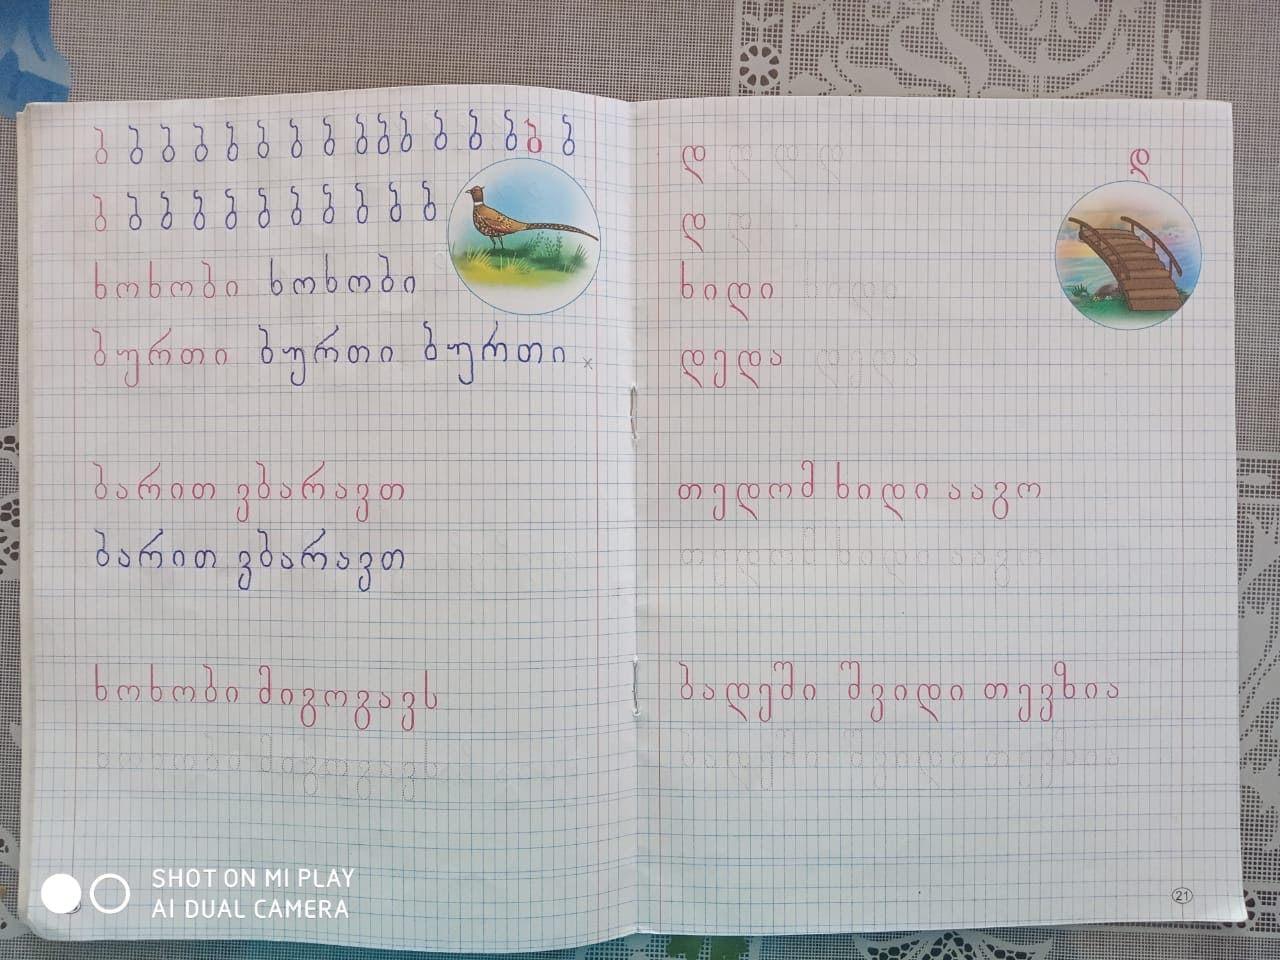 ბ ბ ბ ბ ბ ბ ბ ბ ბ ბ ბ ბ ბ ბ ბ ბ
ბ ბ ბ ბ ბ ბ ბ ბ ბ ბ ბ
ხოხობი ხოხობი
ბურთი ბურთი ბურთი
ბარით ვბარავთ
ბარით ვბარავთ
ხოხობი მიგოგავს
ხოხობი მიგოგავს
დ დ დ დ დ
დ
დ დ
ხიდი ხიდი
დედა დედა
თედომ ხიდი ააგო
თედომ ხიდი ააგო
ბადეში შვიდი თევზია
ბადეში შვიდი თევზია
21
SHOT ON MI PLAY
AI DUAL CAMERA